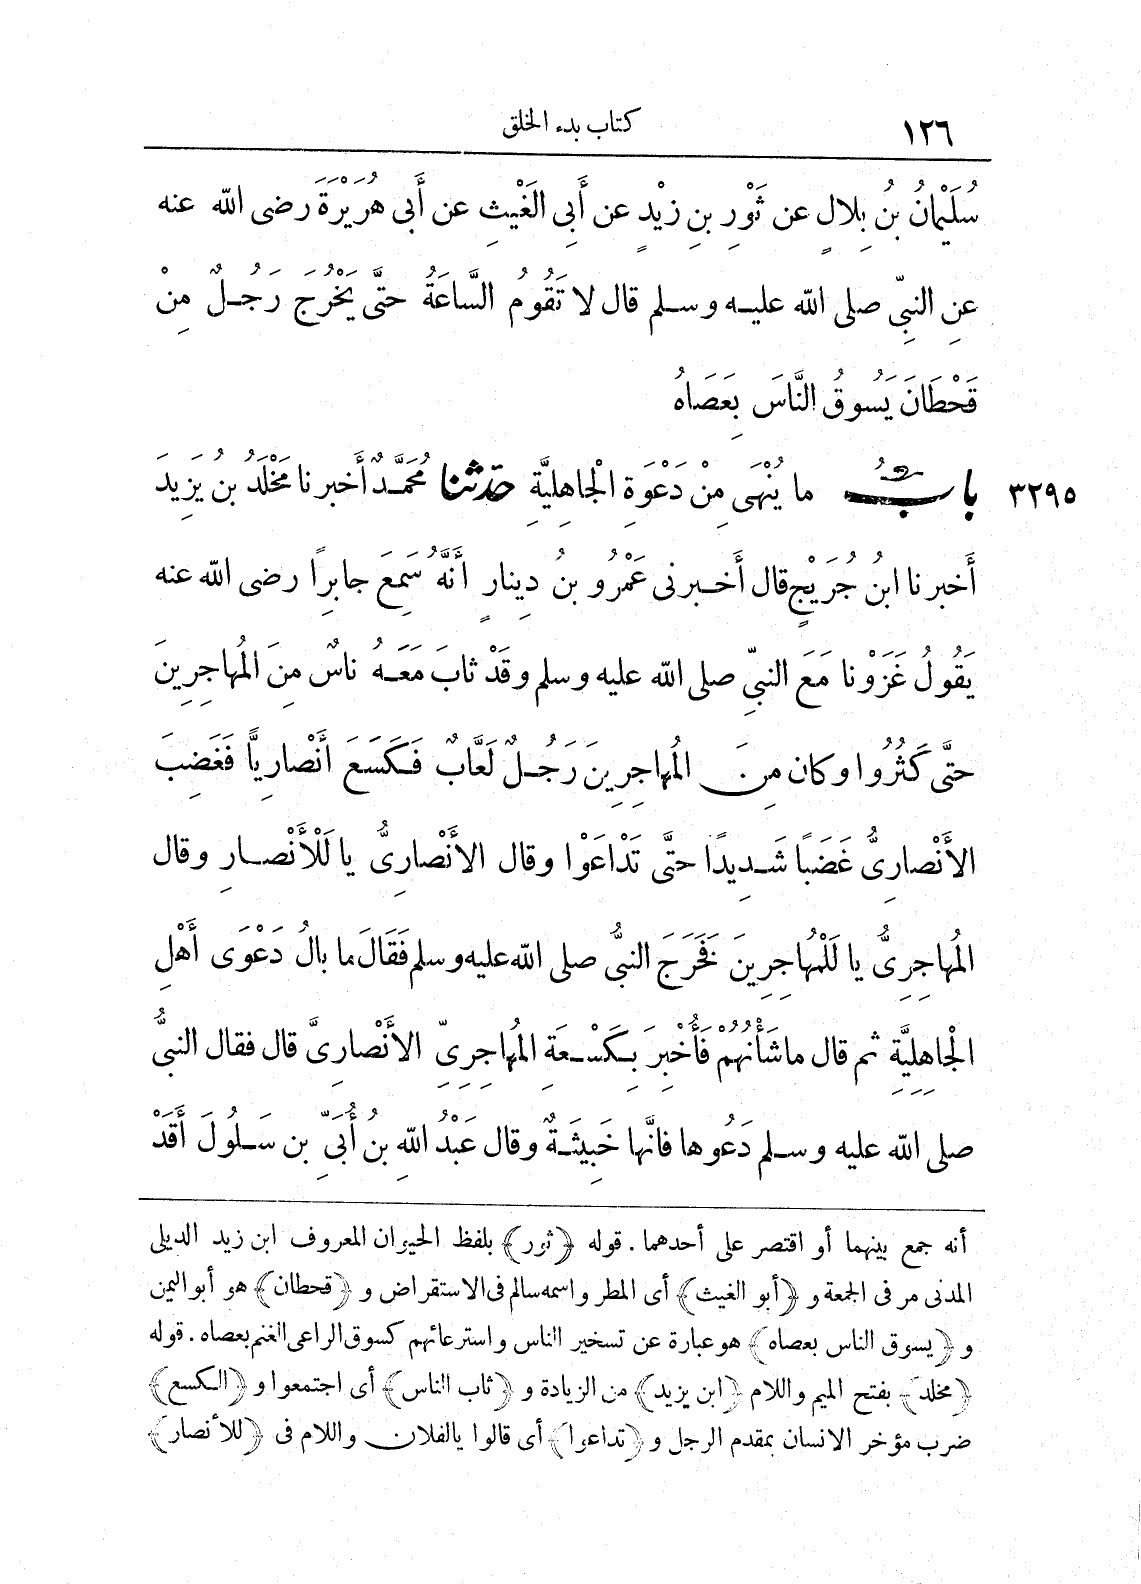 ١٢٦ كتاب بدء الخلق
سُلَيْمانُ بنُ بِلالٍ عن ثَوْرِ بنِ زَيْدٍ عن أَبِى الغَيْثِ عن أَبى هُرَيْرَةَ رضى الله عنه
عنِ النبىِّ صلى الله عليه وسلم قال لا تَقُومُ السَّاعَةُ حتَّى يَخْرُجَ رَجُلٌ مِنْ
قَحْطَانَ يَسُوقُ النَّاسَ بِعَصَاهُ
٣٢٩٥ بابُ ما يُنْهَى مِنْ دَعْوَةِ الْجاهِلِيَّةِ حدثنا مُحَمَّدٌ أَخبرنا مَخْلَدُ بن يَزِيدَ
أَخبرنا ابنُ جُرَيْجٍ قال أَخبرنى عَمْرُو بنُ دِينارٍ أَنَّهُ سَمِعَ جابِراً رضى الله عنه
يَقُولُ غَزَوْنا مَعَ النبىِّ صلى الله عليه وسلم وقَدْ ثابَ مَعَهُ ناسٌ مِنَ الْمُهاجِرِينَ
حتَّى كَثُرُوا وكان مِنَ الْمُهاجِرِينَ رَجُلٌ لَعَّابٌ فَكَسَعَ أَنْصارِيًّا فَغَضِبَ
الأَنْصارِىُّ غَضَباً شَدِيدًا حتَّى تَدْاعَوْا وقال الأَنْصارِىُّ يا لَلْأَنْصارِ وقال
الْمُهاجِرِىُّ يا لَلْمُهاجِرِينَ فَخَرَجَ النبىُّ صلى الله عليه وسلم فَقَالَ ما بالُ دَعْوَى أَهْلِ
الْجاهِلِيَّةِ ثم قال ماشَأْنُهُمْ فَأُخْبِرَ بِكَسْعَةِ الْمُهاجِرِىِّ الأَنْصارِىَّ قال فقال النبىُّ
صلى الله عليه وسلم دَعُوها فانَّها خَبِيثَةٌ وقال عَبْدُ اللهِ بنُ أُبَىِّ بن سَلُولَ أَقَدْ
أنه جمع بينهما أو اقتصر على أحدهما. قوله ﴿ثور﴾ بلفظ الحيوان المعروف ابن زيد الديلى
المدنى مر فى الجمعة و ﴿أبو الغيث﴾ أى المطر واسمه سالم فى الاستقراض و ﴿قحطان﴾ هو أبواليمن
و ﴿يسوق الناس بعصاه﴾ هو عبارة عن تسخير الناس واسترعائهم كسوق الراعى الغنم بعصاه. قوله
﴿مخلد﴾ بفتح الميم واللام ﴿ابن يزيد﴾ من الزيادة و ﴿ثاب الناس﴾ أى اجتمعوا و ﴿الكسع﴾
ضرب مؤخر الانسان بمقدم الرجل و ﴿تداعوا﴾ أى قالوا يالفلان واللام فى ﴿للأنصار﴾